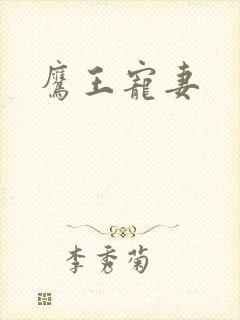 鷹王寵妻
李秀菊